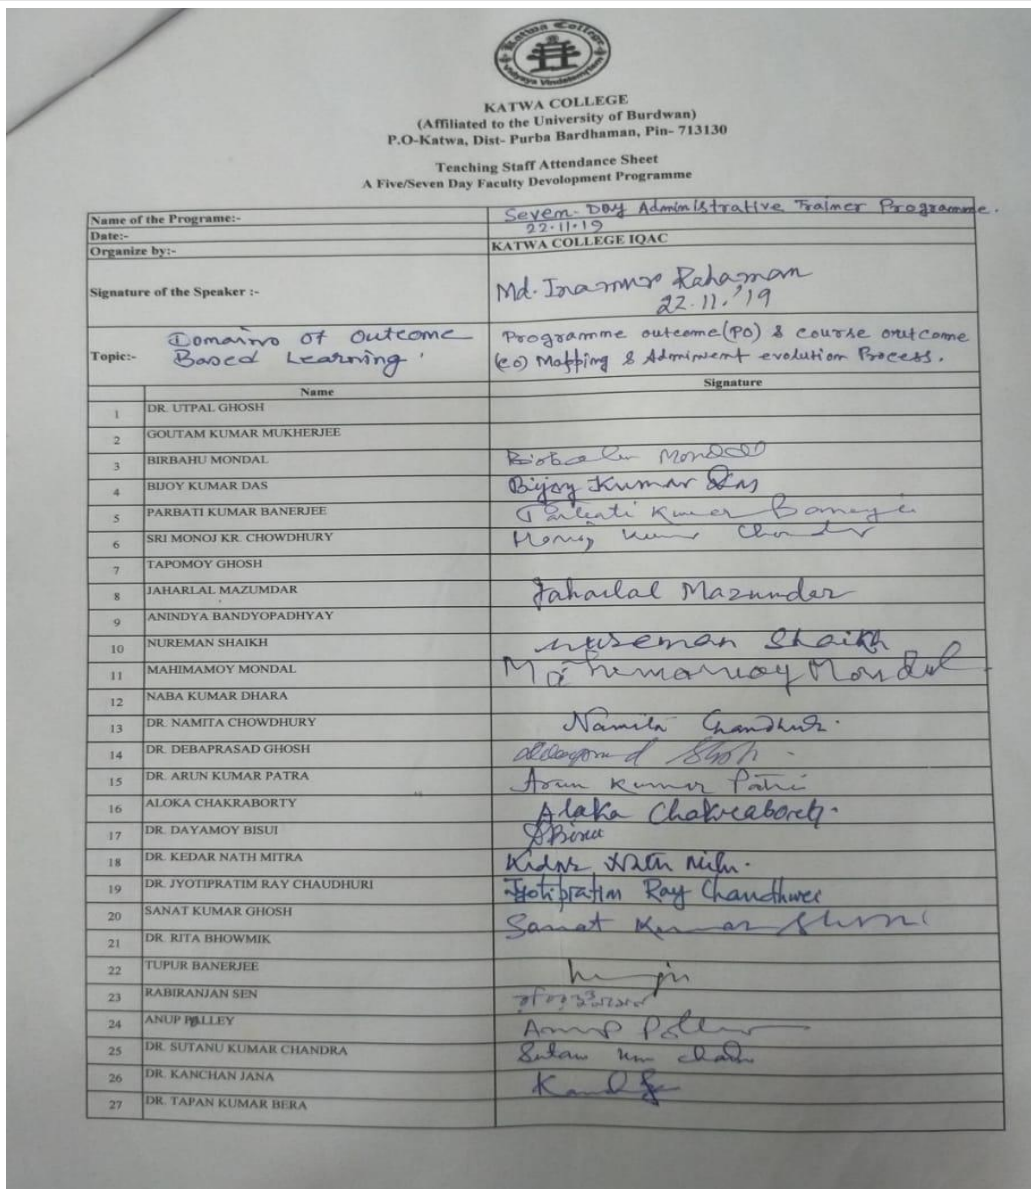 Katwa College
Vidyaya Vindatemritam
KATWA COLLEGE
(Affiliated to the University of Burdwan)
P.O-Katwa, Dist- Purba Bardhaman, Pin- 713130
Teaching Staff Attendance Sheet
A Five/Seven Day Faculty Devolopment Programme
Name of the Programe:- Sevem-Day Administrative Trainer Programme.
Date:- 22.11.19
Organize by:- KATWA COLLEGE IQAC
Signature of the Speaker :- Md. Rahaman
22.11.'19
Topic:- Domains of Outcome Based Learning. Programme outcome(PO) & course outcome
(co) Mapping & evolution Process.
Name Signature
1 DR. UTPAL GHOSH
2 GOUTAM KUMAR MUKHERJEE
3 BIRBAHU MONDAL Mondal
4 BIJOY KUMAR DAS Bijoy Kumar Das
5 PARBATI KUMAR BANERJEE Parbati Kumar
6 SRI MONOJ KR. CHOWDHURY
7 TAPOMOY GHOSH
8 JAHARLAL MAZUMDAR Jaharlal Mazumder
9 ANINDYA BANDYOPADHYAY
10 NUREMAN SHAIKH Nureman Shaikh
11 MAHIMAMOY MONDAL Mahimamoy Mondal
12 NABA KUMAR DHARA
13 DR. NAMITA CHOWDHURY Namita
14 DR. DEBAPRASAD GHOSH
15 DR. ARUN KUMAR PATRA Arun Kumar Patra
16 ALOKA CHAKRABORTY Alaka Chakraborty.
17 DR. DAYAMOY BISUI DBisui
18 DR. KEDAR NATH MITRA
19 DR. JYOTIPRATIM RAY CHAUDHURI Jyotipratim Ray Chaudhuri
20 SANAT KUMAR GHOSH Sanat Kumar Ghosh
21 DR. RITA BHOWMIK
22 TUPUR BANERJEE
23 RABIRANJAN SEN
24 ANUP PALLEY Anup
25 DR. SUTANU KUMAR CHANDRA
26 DR. KANCHAN JANA
27 DR. TAPAN KUMAR BERA